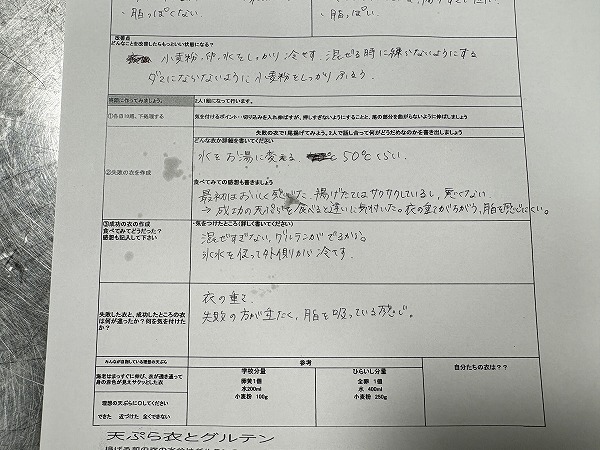 ・脂っぽくない。
・脂っぽい。
改善点
どんなことを改善したらもっといい状態になる？
小麦粉、卵、水をしっかり冷やす。混ぜる時に練らないようにする
ダマにならないように小麦粉をしっかりふるう。
実際に作ってみましょう。
2人1組になって行います。
①各自10尾、下処理する
気を付けるポイント…切り込みを入れ伸ばすが、押しすぎないようにすることと、尾の部分を曲がらないように伸ばしましょう
失敗の衣で1尾揚げてみよう。2人で話し合って何がどうだめなのかを書き出しましょう
②失敗の衣を作成
どんな衣か詳細を書いてください
水をお湯に変える。 50℃くらい。
食べてみての感想も書きましょう
最初はおいしく感じた、揚げたてはサクサクしているし、悪くない
→成功の天ぷらを食べると違いに気付いた。衣の重さがちがう、脂を感じにくい。
③成功の衣の作成
食べてみてどうだった？
感想も記入して下さい
・気をつけたところ（詳しく書いてください）
混ぜすぎない、グルテンがでるから。
氷水を使って外側から冷やす。
失敗した衣と、成功したところの衣
は何が違ったか？何を気を付けた
か？
衣の重さ
失敗の方が重たく、脂を吸っている感じ。
みんなが目指している理想の天ぷら
海老はまっすぐに伸び、衣が透き通って
身の赤色が見えサクっとした衣
理想の天ぷらに〇してください
できた 近づけた 全くできない
参考
学校分量
卵黄1個
水200ml
小麦粉 100g
ひらいし分量
全卵 1個
水 400ml
小麦粉 250g
自分たちの衣は？？
天ぷら衣とグルテン